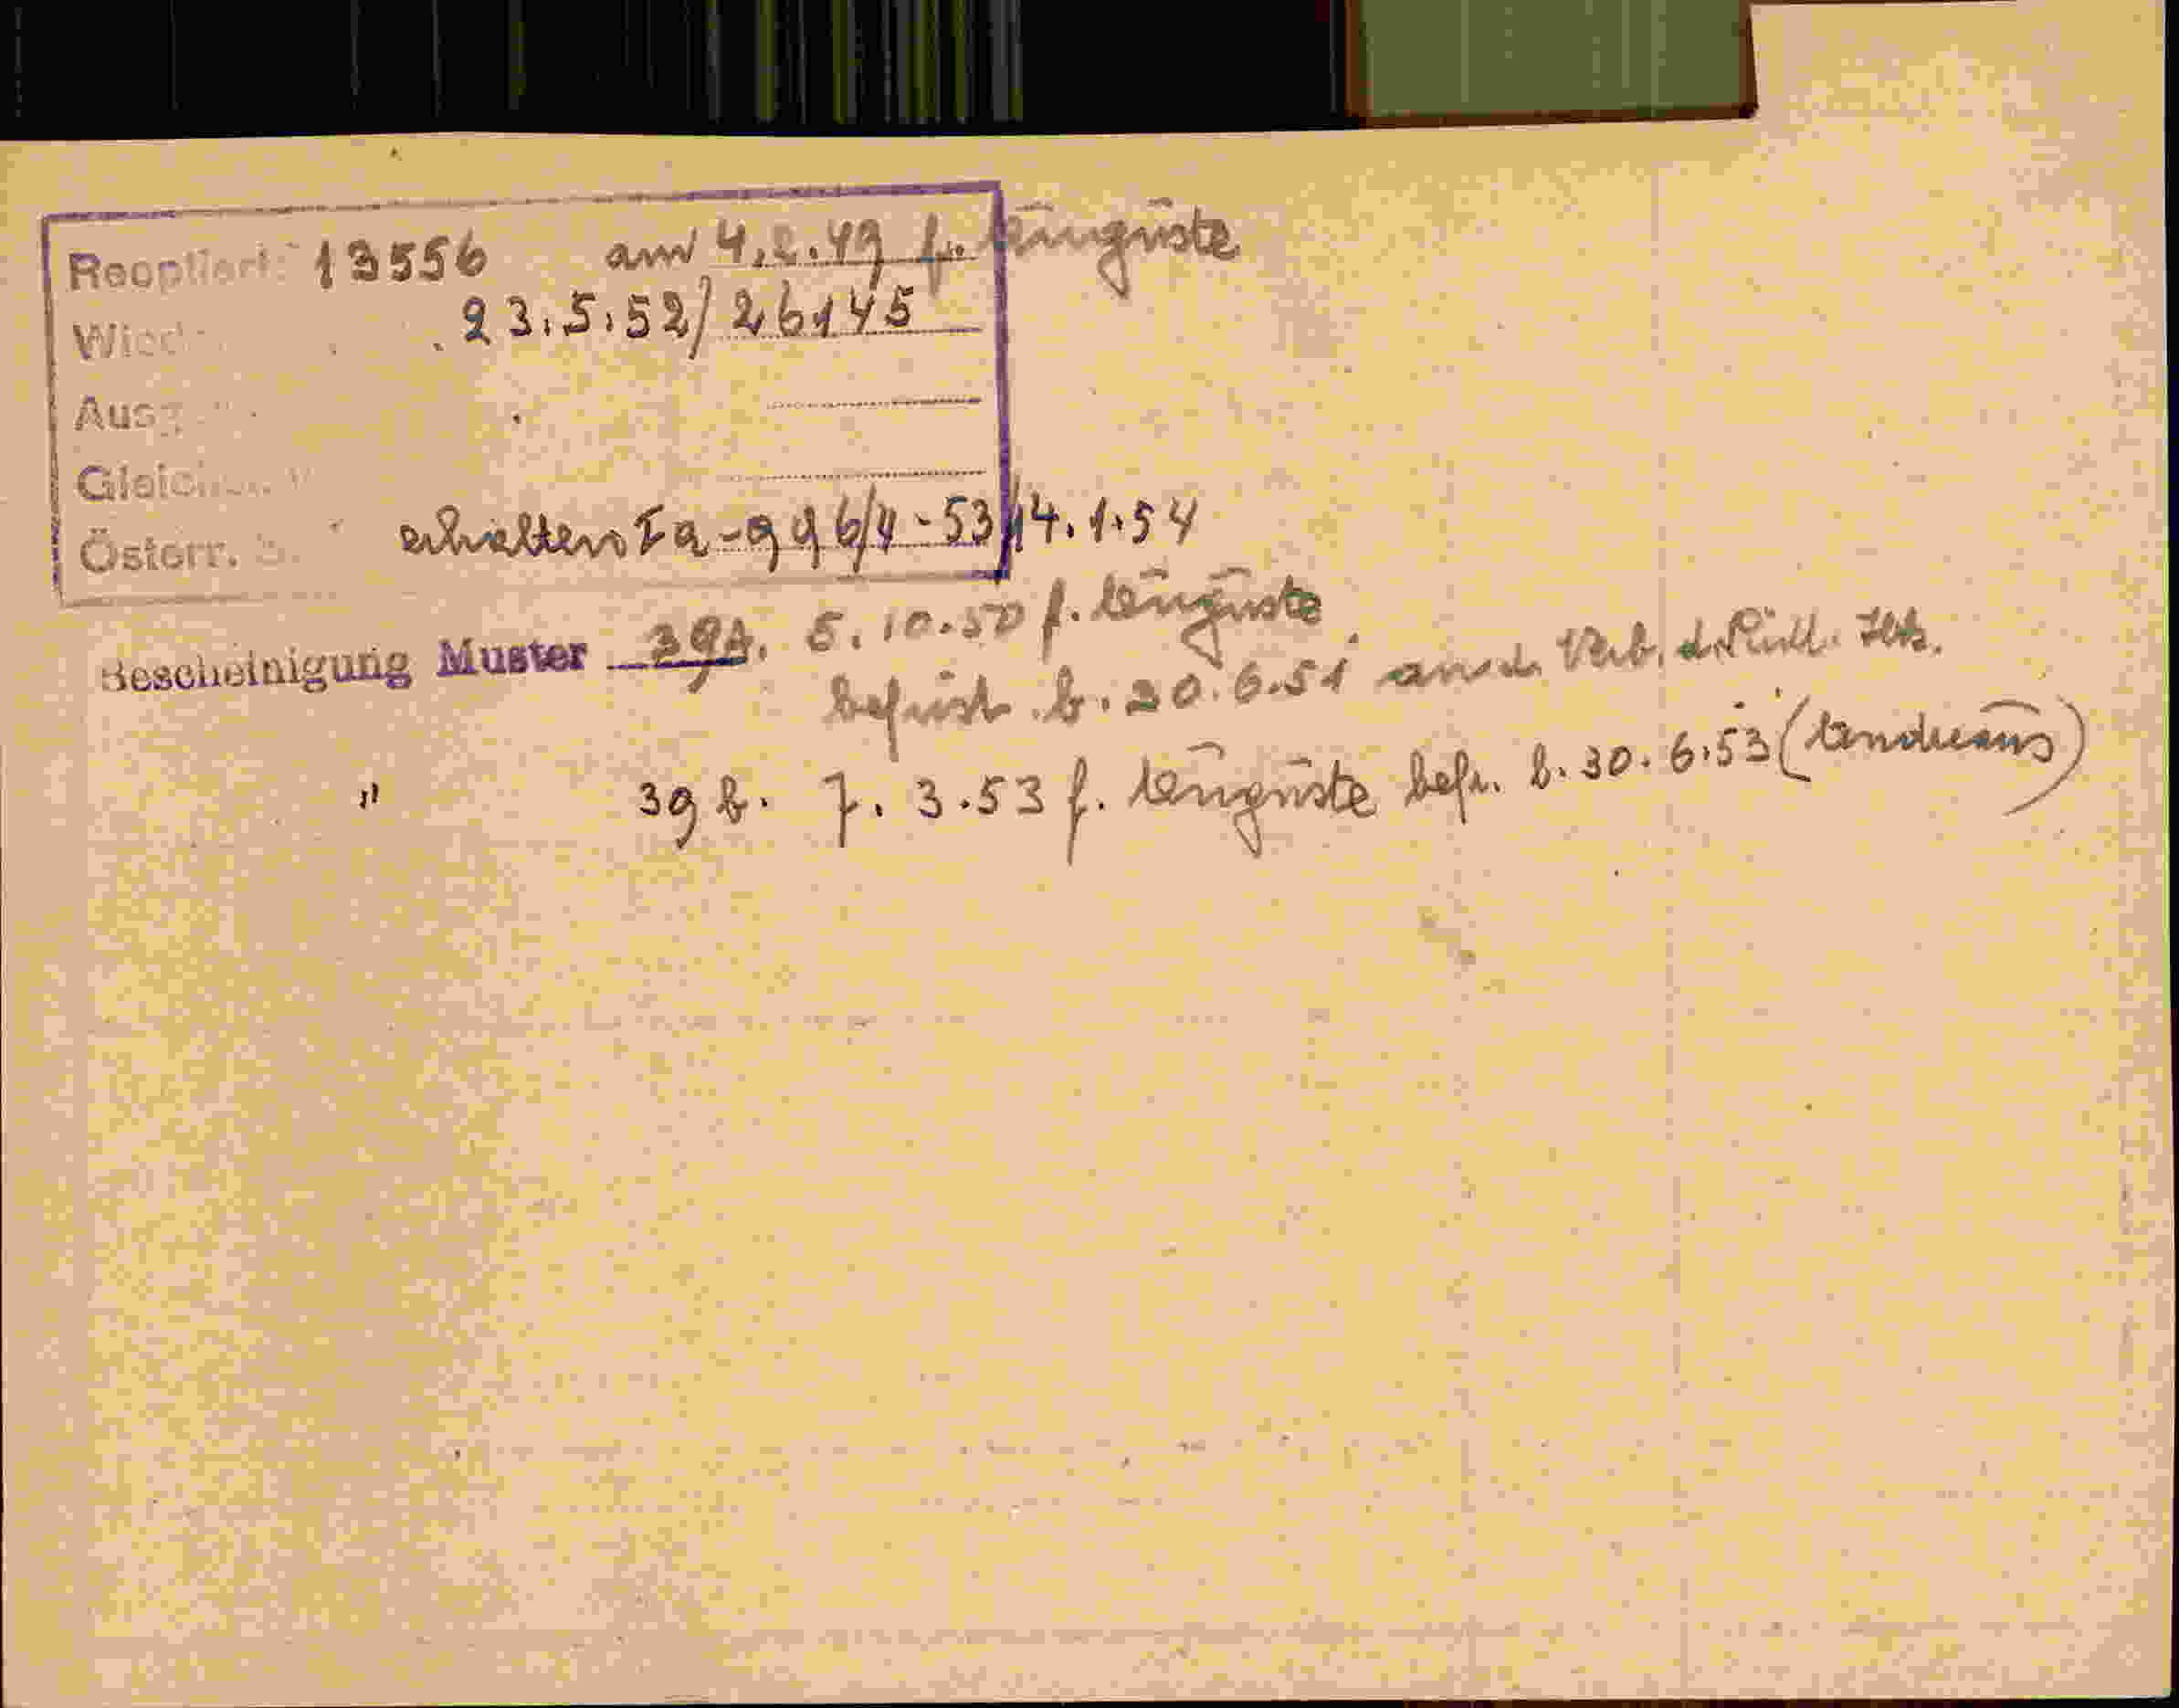 Reoptiert: 13556 am 4.2.49 f. Auguste
Wied 23.5.52/26145
Ausg
Gleich
Österr. S. erhalten Ia-996/4-53 14.1.54
Bescheinigung Muster 39A. 5.10.50 f. Auguste
befrist. b. 30.6.51 an d. Verb. d. Südt.
" 39b. 7.3.53 f. Auguste befr. b. 30.6.53 (Andreaus)